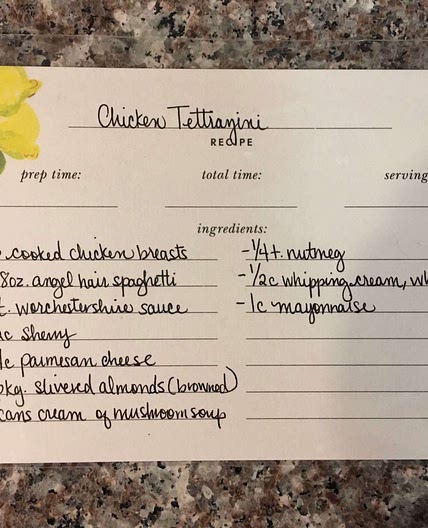 Chicken Tettrazini
RECIPE
prep time:
total time:
serving
ingredients:
cooked chicken breasts
8oz. angel hair spaghetti
t. worchestershire sauce
c Sherry
c parmesan cheese
pkg. slivered almonds (browned)
cans cream of mushroom soup
-1/4 t. nutmeg
-1/2c whipping cream, wh
-1c mayonnaise